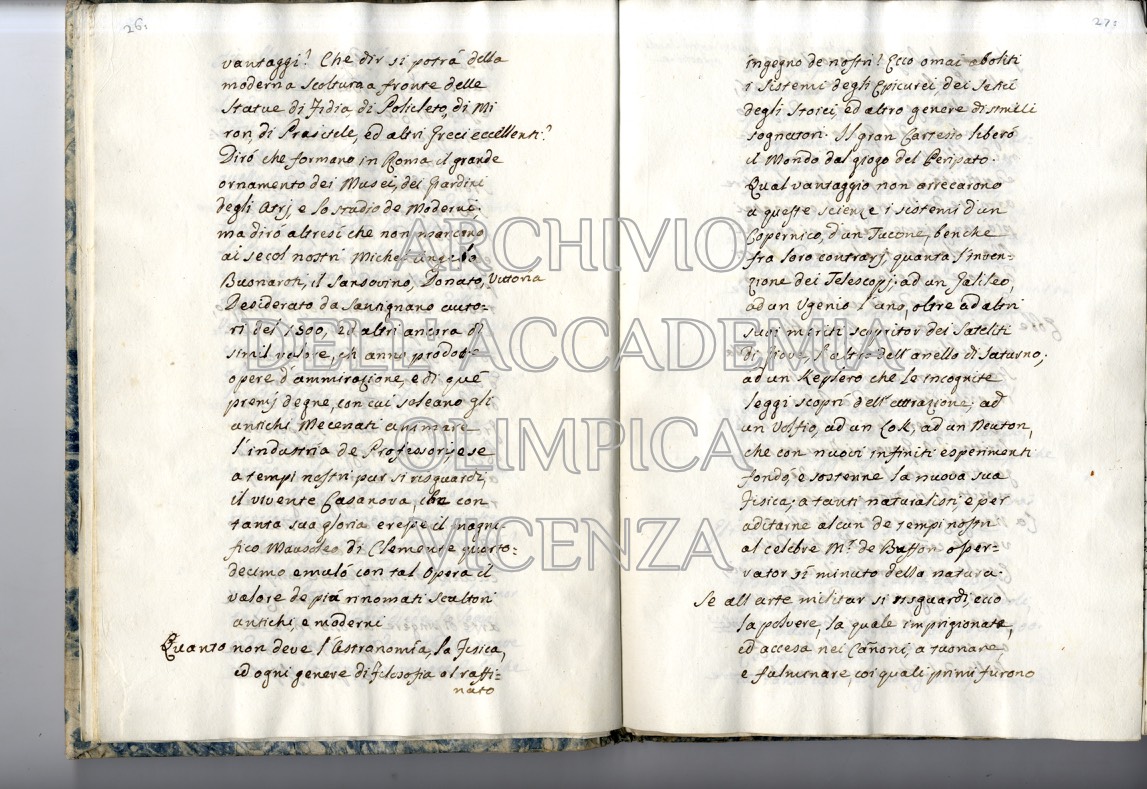 26.
vantaggi? Che dir si potrá della
moderna Scoltura a fronte delle
Statue di Fidia, di Policleto, di Mi
ron, di Prasitele, ed altri Greci eccellenti?
Diró che formano in Roma il grande
ornamento dei Musei, dei Giardini
degli Atrj, e lo studio de Moderni;
ma diró altresí che non mancano
ai secol nostri Michel angelo
Buonaroti, il Sansovino, Donato, Vittoria
Desiderato da Santignano auto-
ri del 1500, ed altri ancora di
simil valore, ch'anno prodotte
opere d'ammirazione, e di qué
premj degne, con cui soleano gli
antichi Mecenati animare
l'industria de Professori; e se
a tempi nostri pur si risguardi,
il vivente Casanova, che con
tanta sua gloria eresse il magni-
fico Mausoleo di Clemente quarto-
decimo emuló con tal Opera il
valore de piú rinomati Scultori
antichi, e moderni
Quanto non deve l'Astronomía, la Fisica,
ed ogni genere di filosofia al raffi-
nato
27.
ingegno de nostri? Ecco omai aboliti
i Sistemi degli Epicurei dei
degli Stoici, ed altro genere di simili
sognatori. Il gran Cartesio liberó
il Mondo dal giogo del Peripato.
Qual vantaggio non arrecarono
a queste scienze i sistemi d'un
Copernico, d'un Ticone, benche
fra loro contrarj quanta l'inven-
zione dei Telescopj; ad un Galileo,
ad un Ugenio l'uno, oltre ad altri
suoi meriti scopritor dei Sateliti
di Giove, l'altro dell'anello di Saturno;
ad un Keplero che le incognite
leggi scoprí dell'attrazione; ad
un Volfio, ad un Lok, ad un Neuton,
che con nuovi infiniti esperimenti
fondó, e sostenne la nuova sua
Fisica; a tanti naturalisti, e per
aditarne alcun de tempi nostri
al celebre Mr. de Buffon osser-
vator sí minuto della natura.
Se all'arte militar si risguardi, ecco
la polvere, la quale imprigionata,
ed accesa nei Cañoni, a tuonare
e fulminare, coi quali primi furono
ARCHIVIO
DELL'ACCADEMIA
OLIMPICA
VICENZA